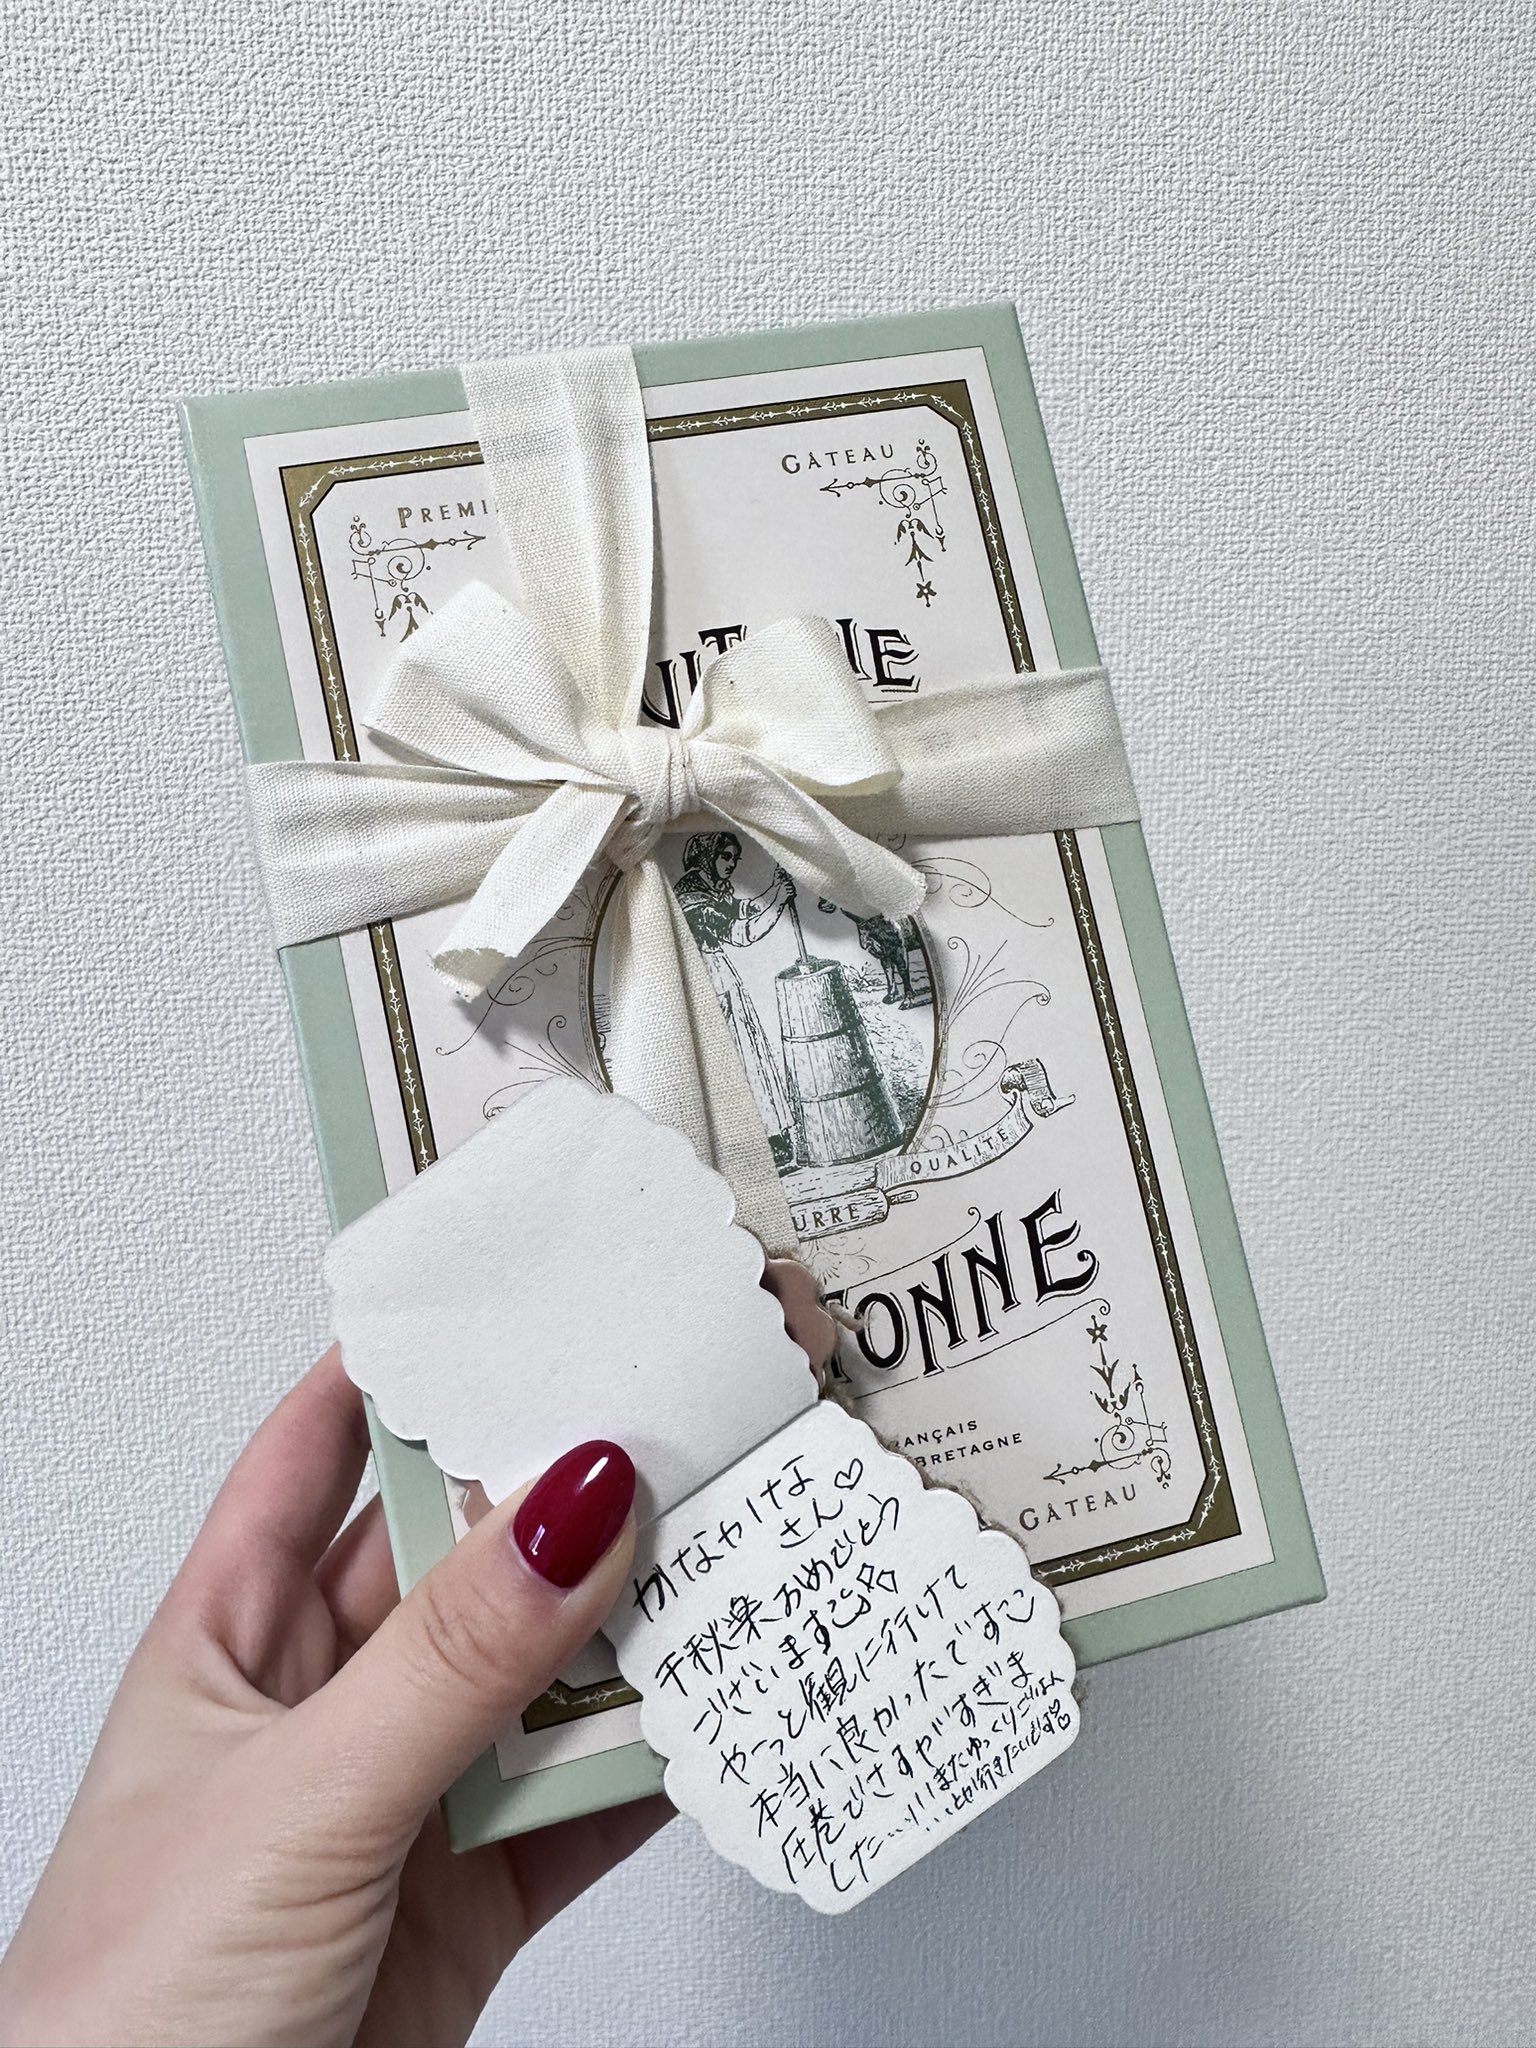 GÂTEAU
PREMI
QUALITÉ
URRE
TONNE
ANÇAIS
BRETAGNE
GÂTEAU
かなやけな
さん♡
千秋楽おめでとう
ございます
やーっと観に行けて
本当に良かったですッ
圧巻でさすがすぎま
した…!!!またゆっくりごはん
…とか行きたいです♡♡